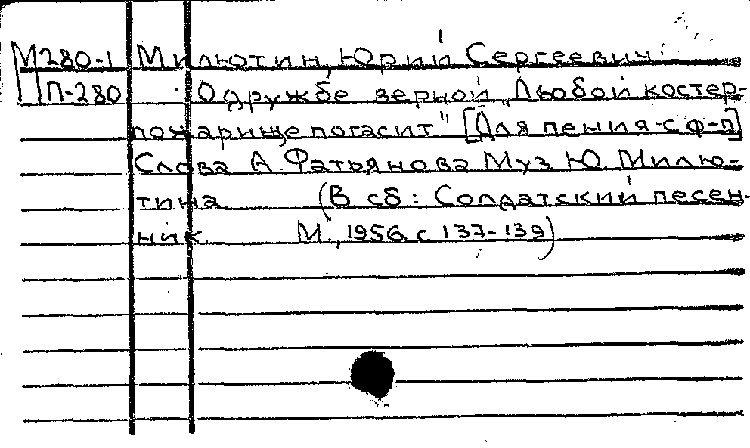 М280-1 Милютин, Юрий Сергеевич.
П-280 О дружбе зерной „Любой костер-
пожарище погасит" [Для пения с ф-п]
Слова А. Фатьянова Муз Ю. Милю-
тина (В сб: Солдатский песен-
ник М., 1956. с 137-139)